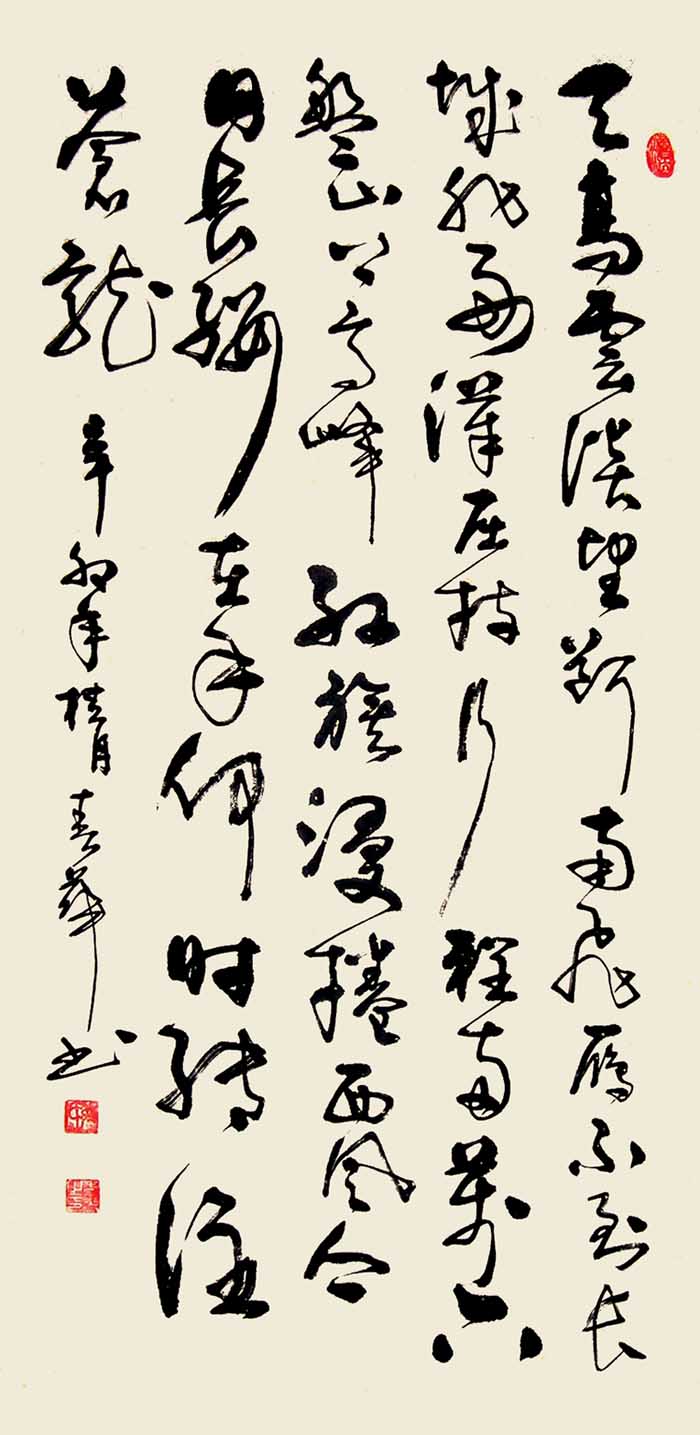 天高雲淡望斷南飛雁不到长
城非好漢屈指行程两萬六
盤山上高峰红旗漫捲西風今
日長纓在手何时缚住
蒼龍
辛卯年桂月春華书